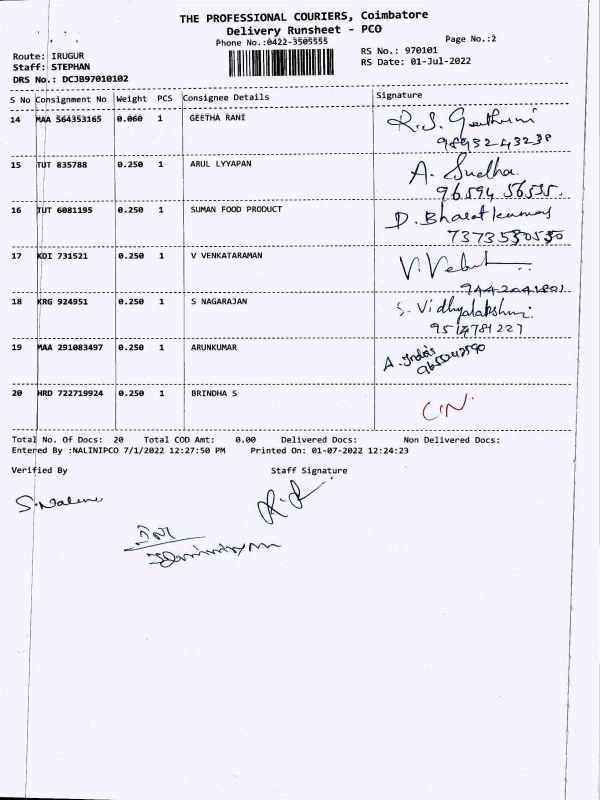 THE PROFESSIONAL COURIERS, Coimbatore
Delivery Runsheet - PCO
Phone No.:0422-3505555
Page No.:2
Route: IRUGUR
RS No.: 970101
Staff: STEPHAN
RS Date: 01-Jul-2022
DRS No.: DCJB97010102
S No Consignment No Weight PCS Consignee Details Signature
14 MAA 564353165 0.060 1 GEETHA RANI R.S.
15 TUT 835788 0.250 1 ARUL LYYAPAN A. Sudha
96594 56535.
16 TUT 6081195 0.250 1 SUMAN FOOD PRODUCT D. Bharat kumar
7373530550
17 KDI 731521 0.250 1 V VENKATARAMAN
9442041801
18 KRG 924951 0.250 1 S NAGARAJAN S. Vidhyalakshmi
19 MAA 291083497 0.250 1 ARUNKUMAR A.
20 HRD 722719924 0.250 1 BRINDHA S
Total No. Of Docs: 20 Total COD Amt: 0.00 Delivered Docs: Non Delivered Docs:
Entered By :NALINIPCO 7/1/2022 12:27:50 PM Printed On: 01-07-2022 12:24:23
Verified By Staff Signature